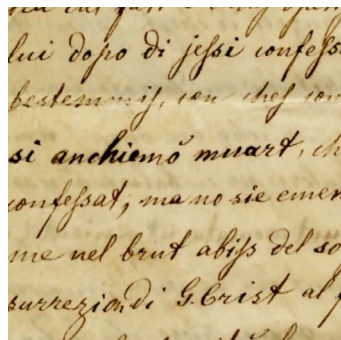 lui dopo di jessi confess
bestemmis, con ches con
si anchiemò muart, ch
confessat, ma no sie emen
me nel brut abiss del so
surrezion di G. Crist al